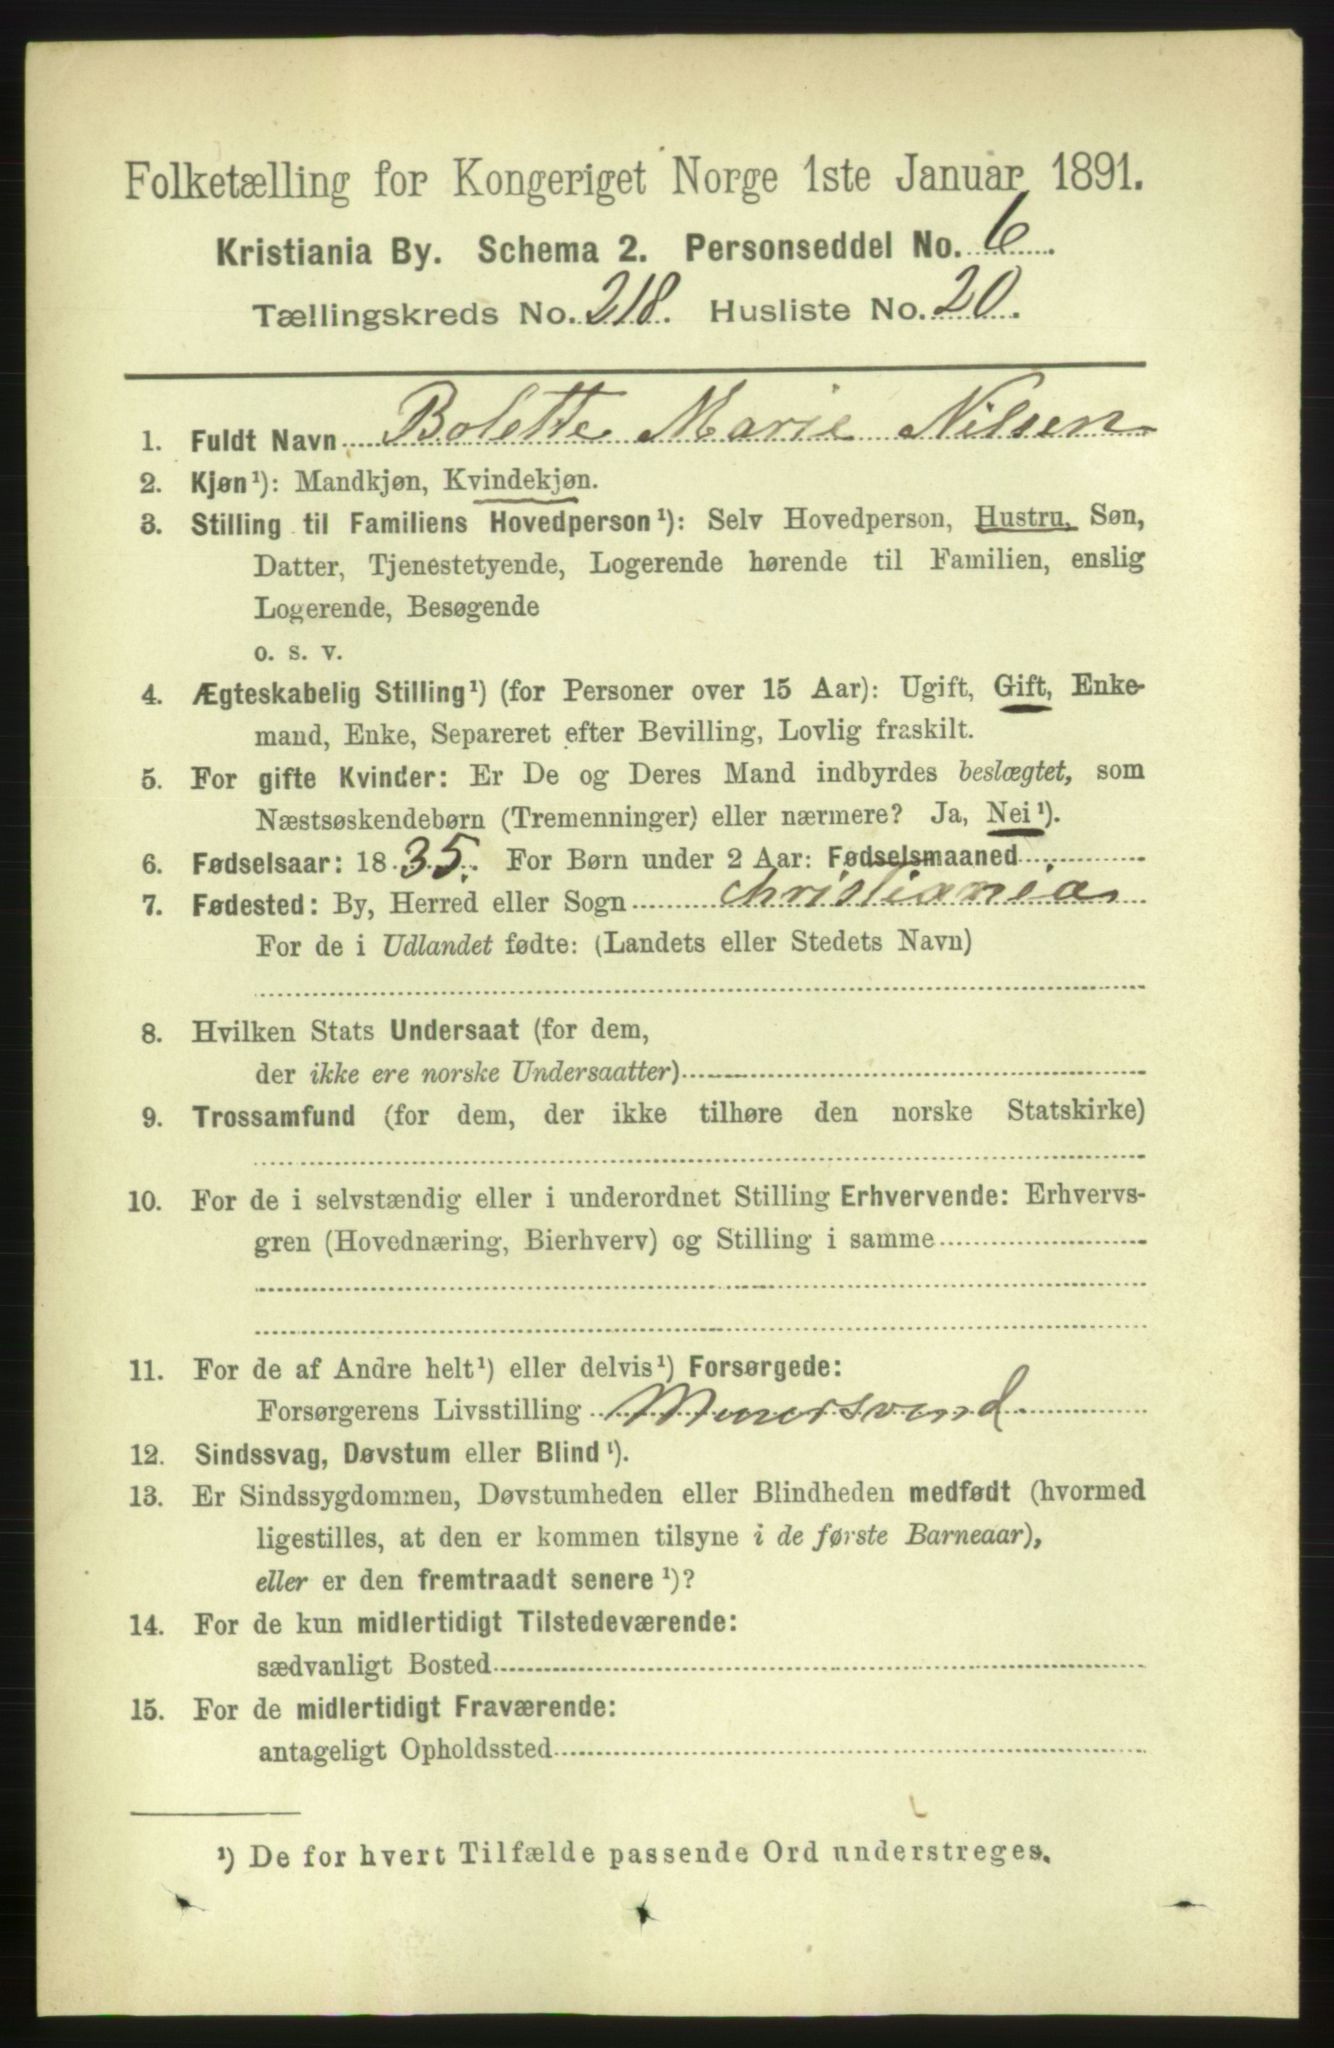 Folketælling for Kongeriget Norge 1ste Januar 1891.
Kristiania By. Schema 2. Personseddel No. 6.
Tællingskreds No. 218. Husliste No. 20.
1. Fuldt Navn Bolette Marie Nilsen
2. Kjøn¹): Mandkjøn, Kvindekjøn.
3. Stilling til Familiens Hovedperson¹): Selv Hovedperson, Hustru, Søn,
Datter, Tjenestetyende, Logerende hørende til Familien, enslig
Logerende, Besøgende
o. s. v.
4. Ægteskabelig Stilling¹) (for Personer over 15 Aar): Ugift, Gift, Enke-
mand, Enke, Separeret efter Bevilling, Lovlig fraskilt.
5. For gifte Kvinder: Er De og Deres Mand indbyrdes beslægtet, som
Næstsøskendebørn (Tremenninger) eller nærmere? Ja, Nei¹).
6. Fødselsaar: 1835. For Børn under 2 Aar: Fødselsmaaned
7. Fødested: By, Herred eller Sogn Christiania
For de i Udlandet fødte: (Landets eller Stedets Navn)
8. Hvilken Stats Undersaat (for dem,
der ikke ere norske Undersaatter)
9. Trossamfund (for dem, der ikke tilhøre den norske Statskirke)
10. For de i selvstændig eller i underordnet Stilling Erhvervende: Erhvervs-
gren (Hovednæring, Bierhverv) og Stilling i samme
11. For de af Andre helt¹) eller delvis¹) Forsørgede:
Forsørgerens Livsstilling Murersvend.
12. Sindssvag, Døvstum eller Blind¹).
13. Er Sindssygdommen, Døvstumheden eller Blindheden medfødt (hvormed
ligestilles, at den er kommen tilsyne i de første Barneaar),
eller er den fremtraadt senere¹)?
14. For de kun midlertidigt Tilstedeværende:
sædvanligt Bosted
15. For de midlertidigt Fraværende:
antageligt Opholdssted
¹) De for hvert Tilfælde passende Ord understreges.